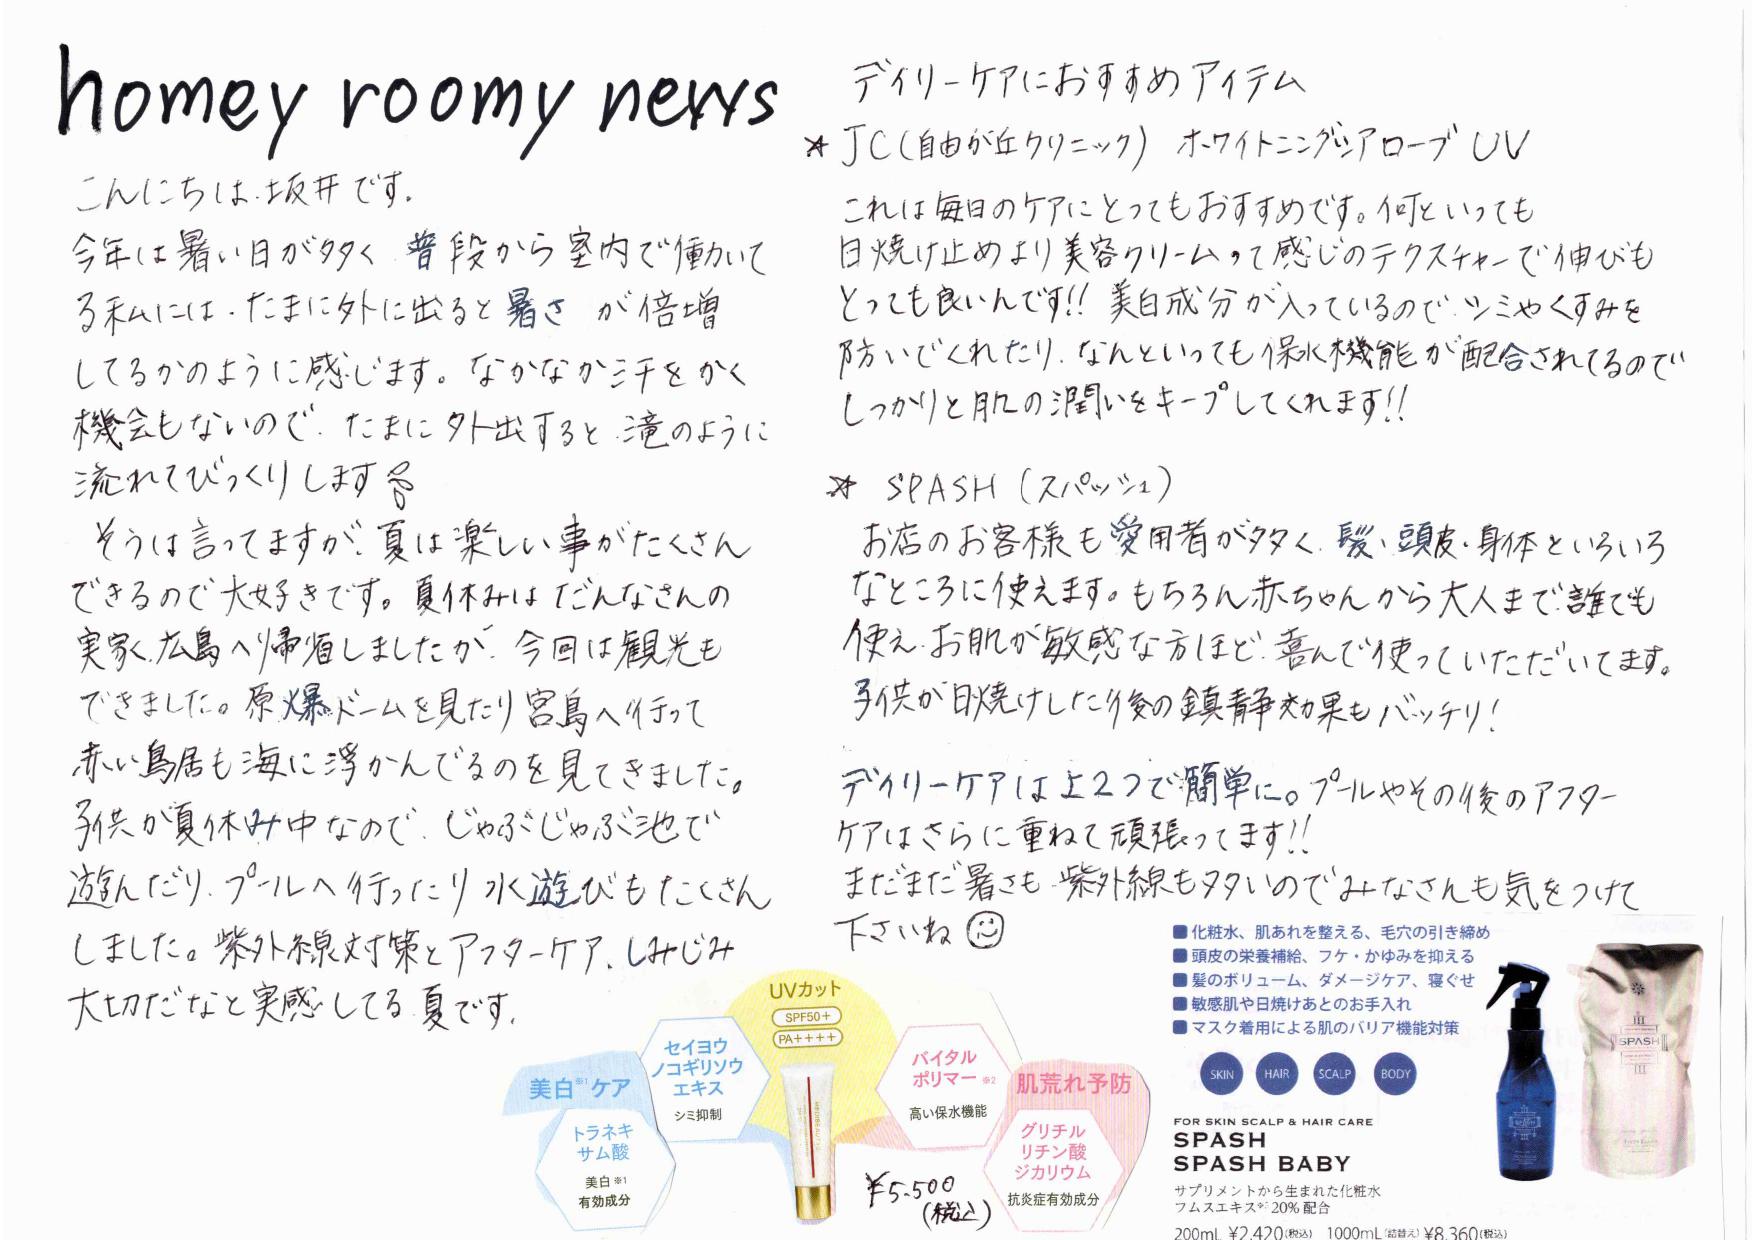 homey roomy news
こんにちは、坂井です。
今年は暑い日が多く 普段から室内で働いて
る私には、たまに外に出ると暑さ が倍増
してるかのように感じます。なかなか汗をかく
機会もないので、たまに外出すると、滝のように
流れてびっくりします
そうは言ってますが、夏は楽しい事がたくさん
できるので大好きです。夏休みはだんなさんの
実家、広島へ帰省しましたが、今回は観光も
できました。原爆ドームを見たり宮島へ行って
赤い鳥居も海に浮かんでるのを見てきました。
子供が夏休み中なので、じゃぶじゃぶ池で
遊んだり、プールへ行ったり水遊びもたくさん
しました。紫外線対策とアフターケア、しみじみ
大切だなと実感してる夏です。
デイリーケアにおすすめアイテム
☆ JC(自由が丘クリニック) ホワイトニングシアローブ UV
これは毎日のケアにとってもおすすめです。何といっても
日焼け止めより美容クリームって感じのテクスチャーで伸びも
とっても良いんです!! 美白成分が入っているので、シミやくすみを
防いでくれたり、なんといっても保水機能が配合されてるので
しっかりと肌の潤いをキープしてくれます!!
☆ SPASH (スパッシュ)
お店のお客様も愛用者が多く、髪、頭皮、身体といろいろ
なところに使えます。もちろん赤ちゃんから大人まで誰でも
使え、お肌が敏感な方ほど、喜んで使っていただいてます。
子供が日焼けした後の鎮静効果もバッチリ!
デイリーケアは上2つで簡単に。プールやその後のアフター
ケアはさらに重ねて頑張ってます!!
まだまだ暑さも、紫外線も多いのでみなさんも気をつけて
下さいね
UVカット
SPF50+
PA++++
美白※1ケア
セイヨウ
ノコギリソウ
エキス
シミ抑制
トラネキ
サム酸
美白※1
有効成分
バイタル
ポリマー※2
高い保水機能
肌荒れ予防
グリチル
リチン酸
ジカリウム
抗炎症有効成分
¥5,500
(税込)
■ 化粧水、肌あれを整える、毛穴の引き締め
■ 頭皮の栄養補給、フケ・かゆみを抑える
■ 髪のボリューム、ダメージケア、寝ぐせ
■ 敏感肌や日焼けあとのお手入れ
■ マスク着用による肌のバリア機能対策
SKIN HAIR SCALP BODY
FOR SKIN SCALP & HAIR CARE
SPASH
SPASH BABY
サプリメントから生まれた化粧水
フムスエキス※20%配合
200mL ¥2,420(税込) 1000mL(詰替え)¥8,360(税込)
SPASH